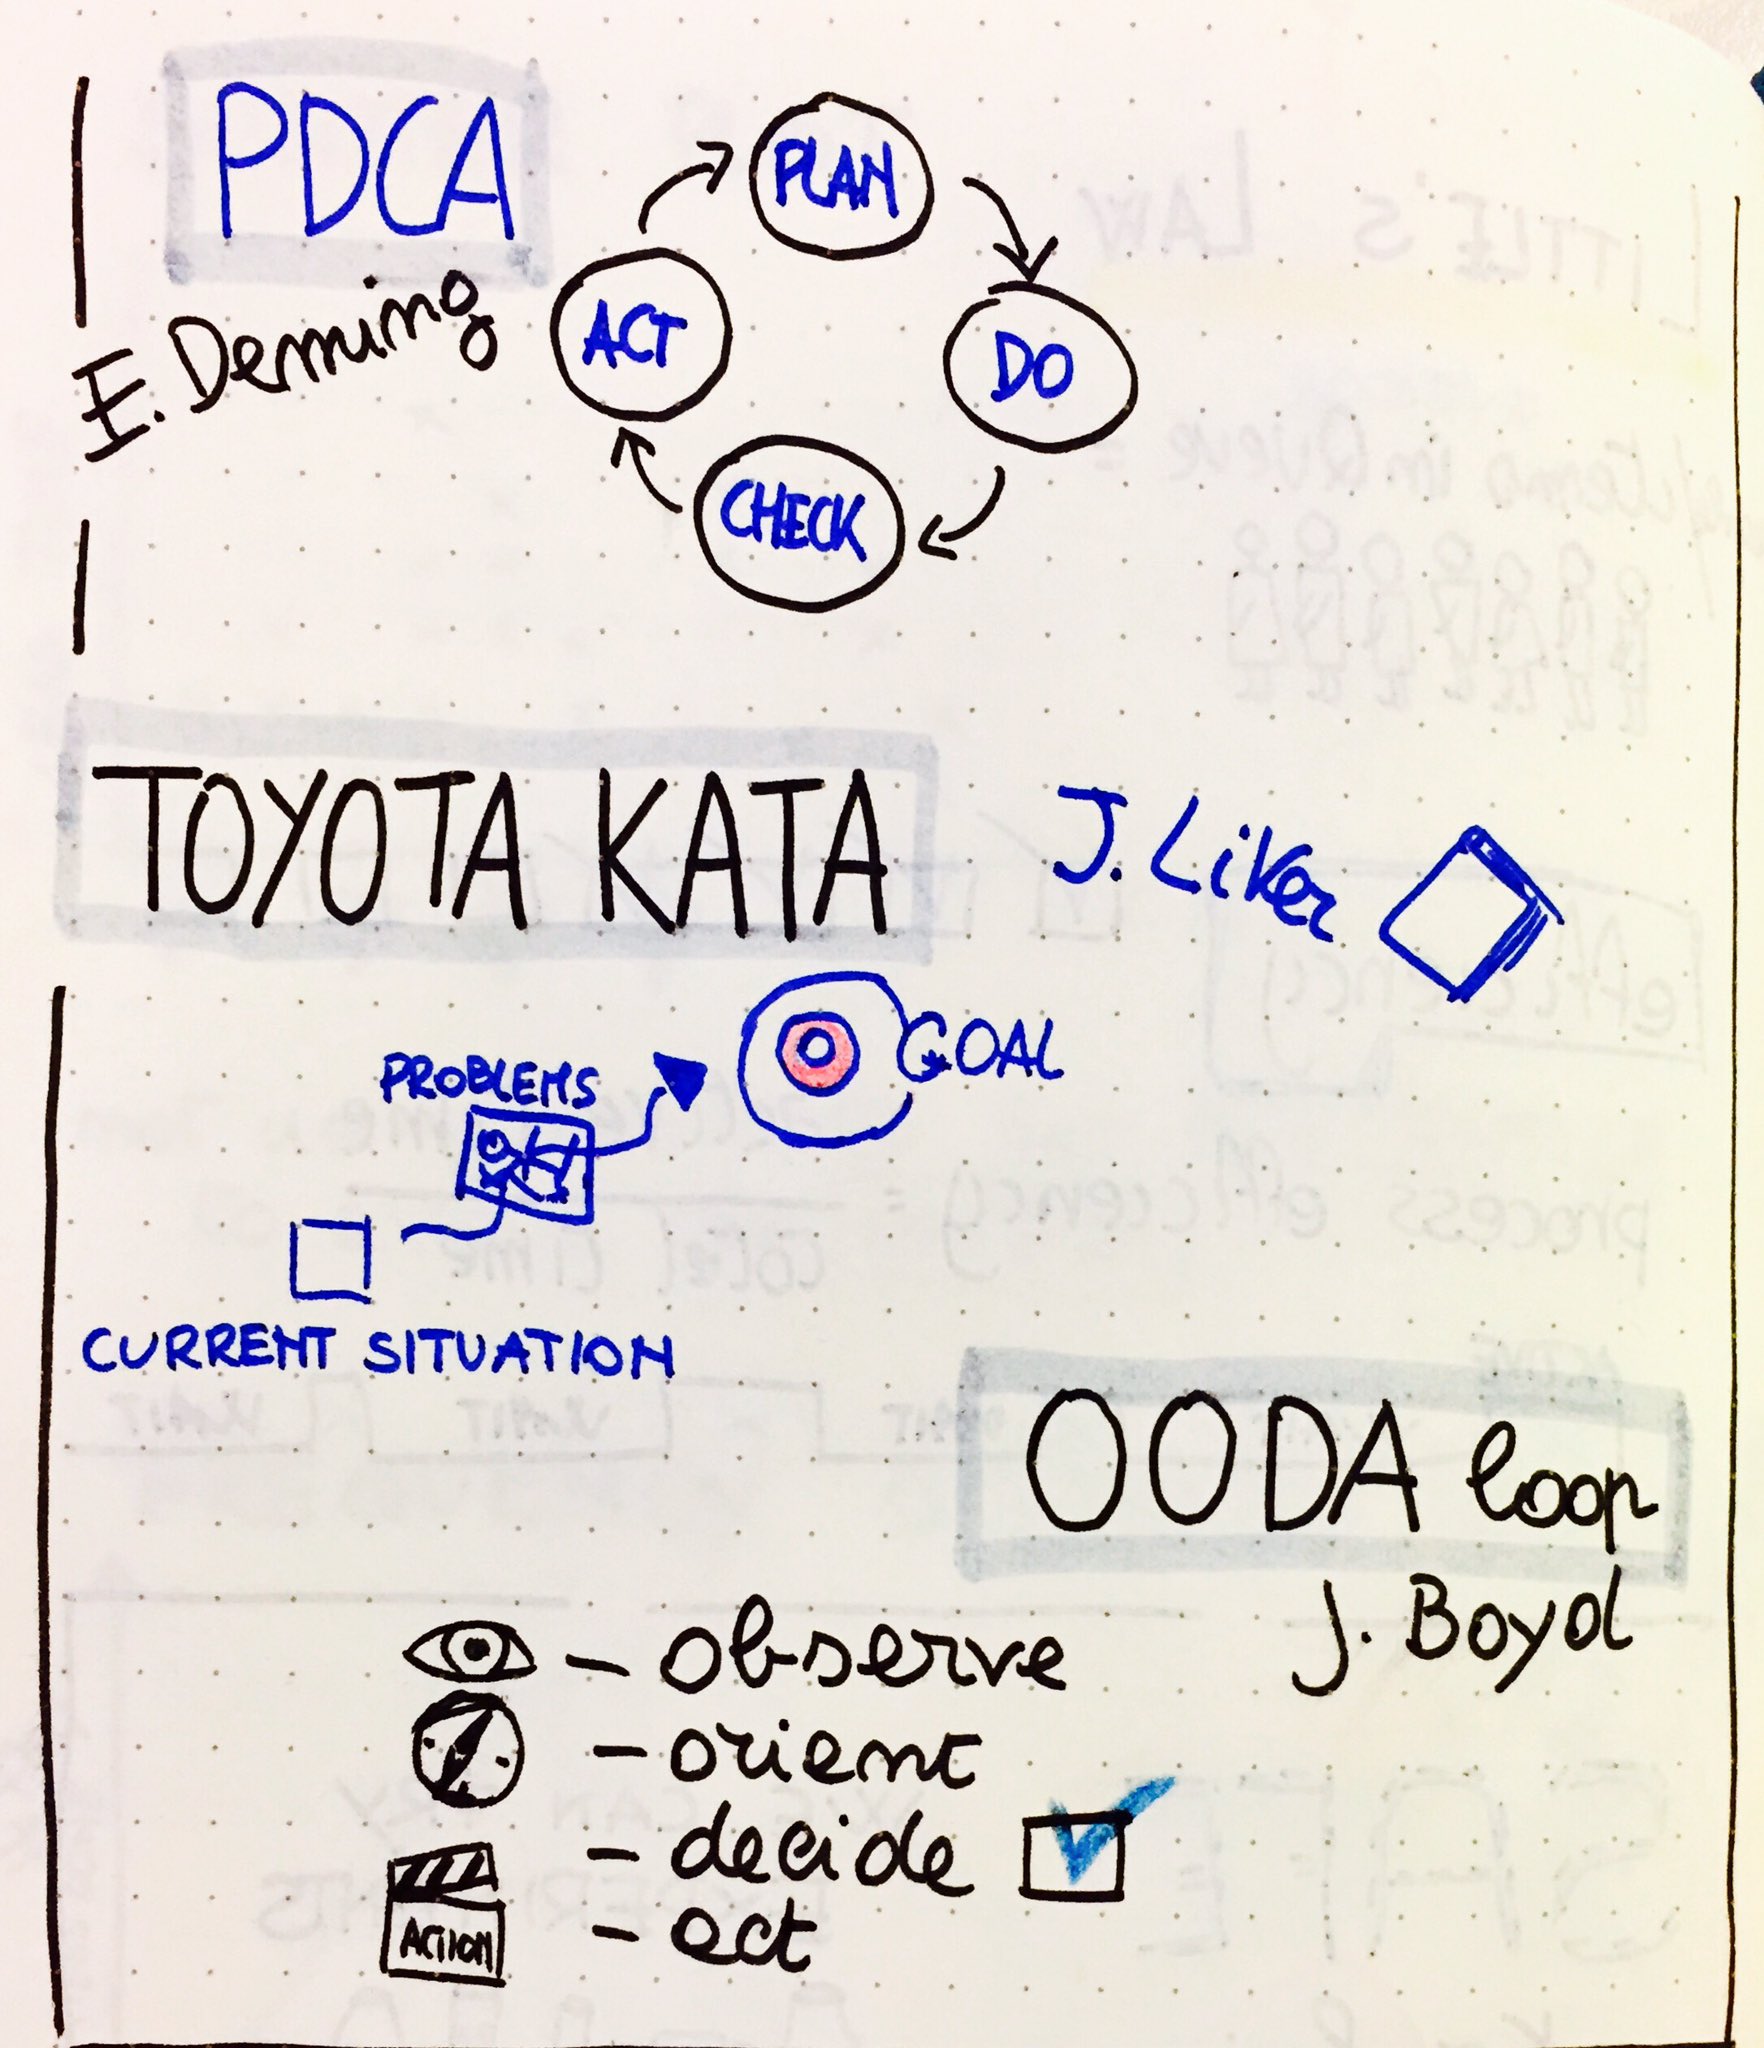 PDCA
E. Deming
PLAN
DO
CHECK
ACT
TOYOTA KATA
J. Liker
GOAL
PROBLEMS
CURRENT SITUATION
OODA loop
J. Boyd
– observe
– orient
– decide
– act
ACTION